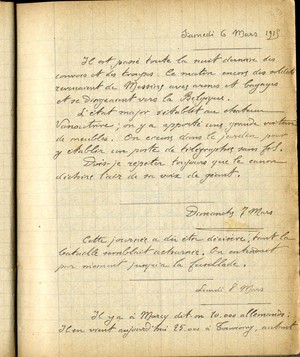 Samedi 6 Mars 1915
Il est passé toute la nuit dernière des
convois et des troupes. Ce matin encore des soldats
revenaient de Messines avec armes et bagages
et se dirigeaient vers la Belgique.
L'état major s'établit au chateau
on y a apporté une grande
de meubles. On creuse dans le jardin pour
y établir un poste de télégraphie sans fil.
Dois-je répéter toujours que le canon
déchire l'air de sa voix de géant.
Dimanche 7 Mars
Cette journée a dû être décisive, tant la
bataille semblait acharnée. On entendait
par moment jusqu'à la fusillade.
Lundi 8 Mars
Il y a à Marcq dit-on 10.000 allemands.
Il en vient aujourd'hui 25.000 à Tourcoing, autant